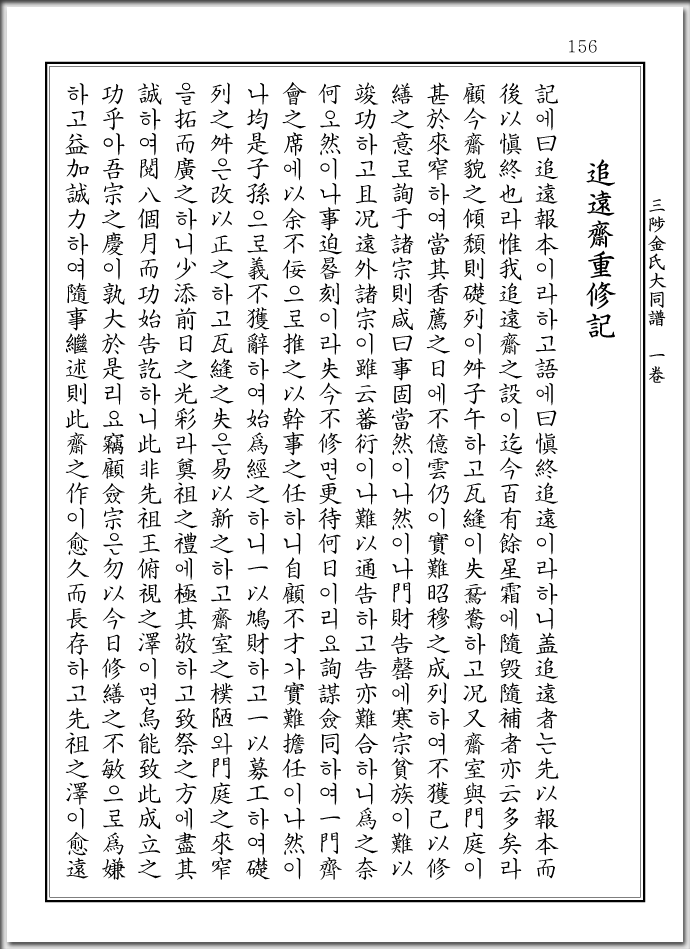 156
三陟金氏大同譜 一卷
追遠齋重修記
記에曰追遠報本이라하고語에曰愼終追遠이라하니盖追遠者는先以報本而
後以愼終也라惟我追遠齋之設이迄今百有餘星霜에隨毁隨補者亦云多矣라
顧今齋貌之傾頹則礎列이舛子午하고瓦縫이失鴌鴦하고况又齋室與門庭이
甚於來窄하여當其香薦之日에不億雲仍이實難昭穆之成列하여不獲己以修
繕之意로詢于諸宗則咸曰事固當然이나然이나門財告罄에寒宗貧族이難以
竣功하고且况遠外諸宗이雖云蕃衍이나難以通告하고告亦難合하니爲之奈
何오然이나事迫晷刻이라失今不修면更待何日이리요詢謀僉同하여一門齊
會之席에以余不佞으로推之以幹事之任하니自顧不才가實難擔任이나然이
나均是子孫으로義不獲辭하여始爲經之하니一以鳩財하고一以募工하여礎
列之舛은改以正之하고瓦縫之失은易以新之하고齋室之樸陋와門庭之來窄
을拓而廣之하니少添前日之光彩라奠祖之禮에極其敬하고致祭之方에盡其
誠하여閱八個月而功始告訖하니此非先祖王俯視之澤이면烏能致此成立之
功乎아吾宗之慶이孰大於是리요竊顧僉宗은勿以今日修繕之不敏으로爲嫌
하고益加誠力하여隨事繼述則此齋之作이愈久而長存하고先祖之澤이愈遠